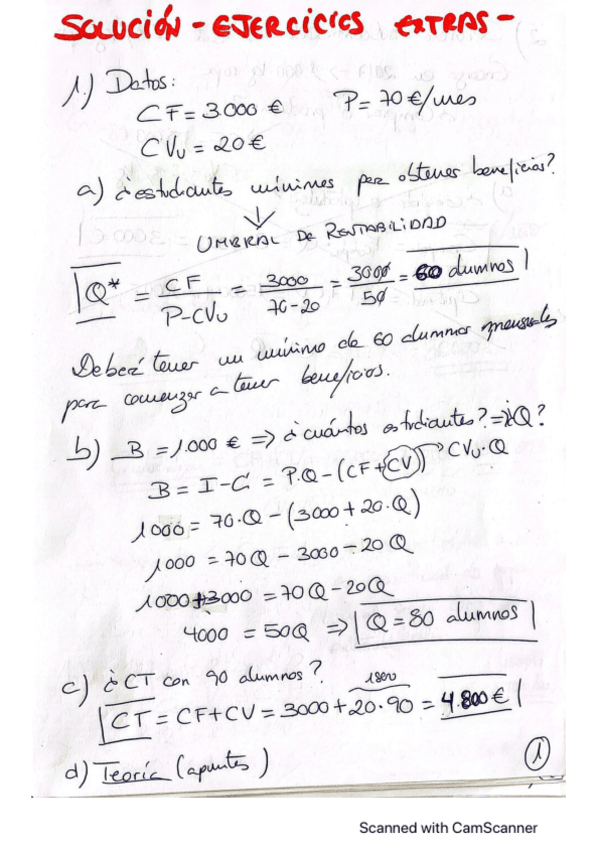 SOLUCIÓN - EJERCICIOS EXTRAS -
1.) Datos:
CF = 3.000 € P = 70 €/mes
CVu = 20 €
a) ¿estudiantes mínimos para obtener beneficios?
UMBRAL DE RENTABILIDAD
Q* = CF / P-CVu = 3000 / 70-20 = 3000 / 50 = 60 alumnos
Deberá tener un mínimo de 60 alumnos mensuales
para comenzar a tener beneficios.
b) B = 1.000 € => ¿cuántos estudiantes? => ¿Q?
B = I-C = P.Q - (CF+CV) → CVu.Q
1000 = 70.Q - (3000 + 20.Q)
1000 = 70Q - 3000 - 20Q
1000+3000 = 70Q - 20Q
4000 = 50Q => Q = 80 alumnos
c) ¿CT con 90 alumnos?
1800
CT = CF+CV = 3000 + 20.90 = 4.800 €
d) Teoría (apuntes)
1
Scanned with CamScanner